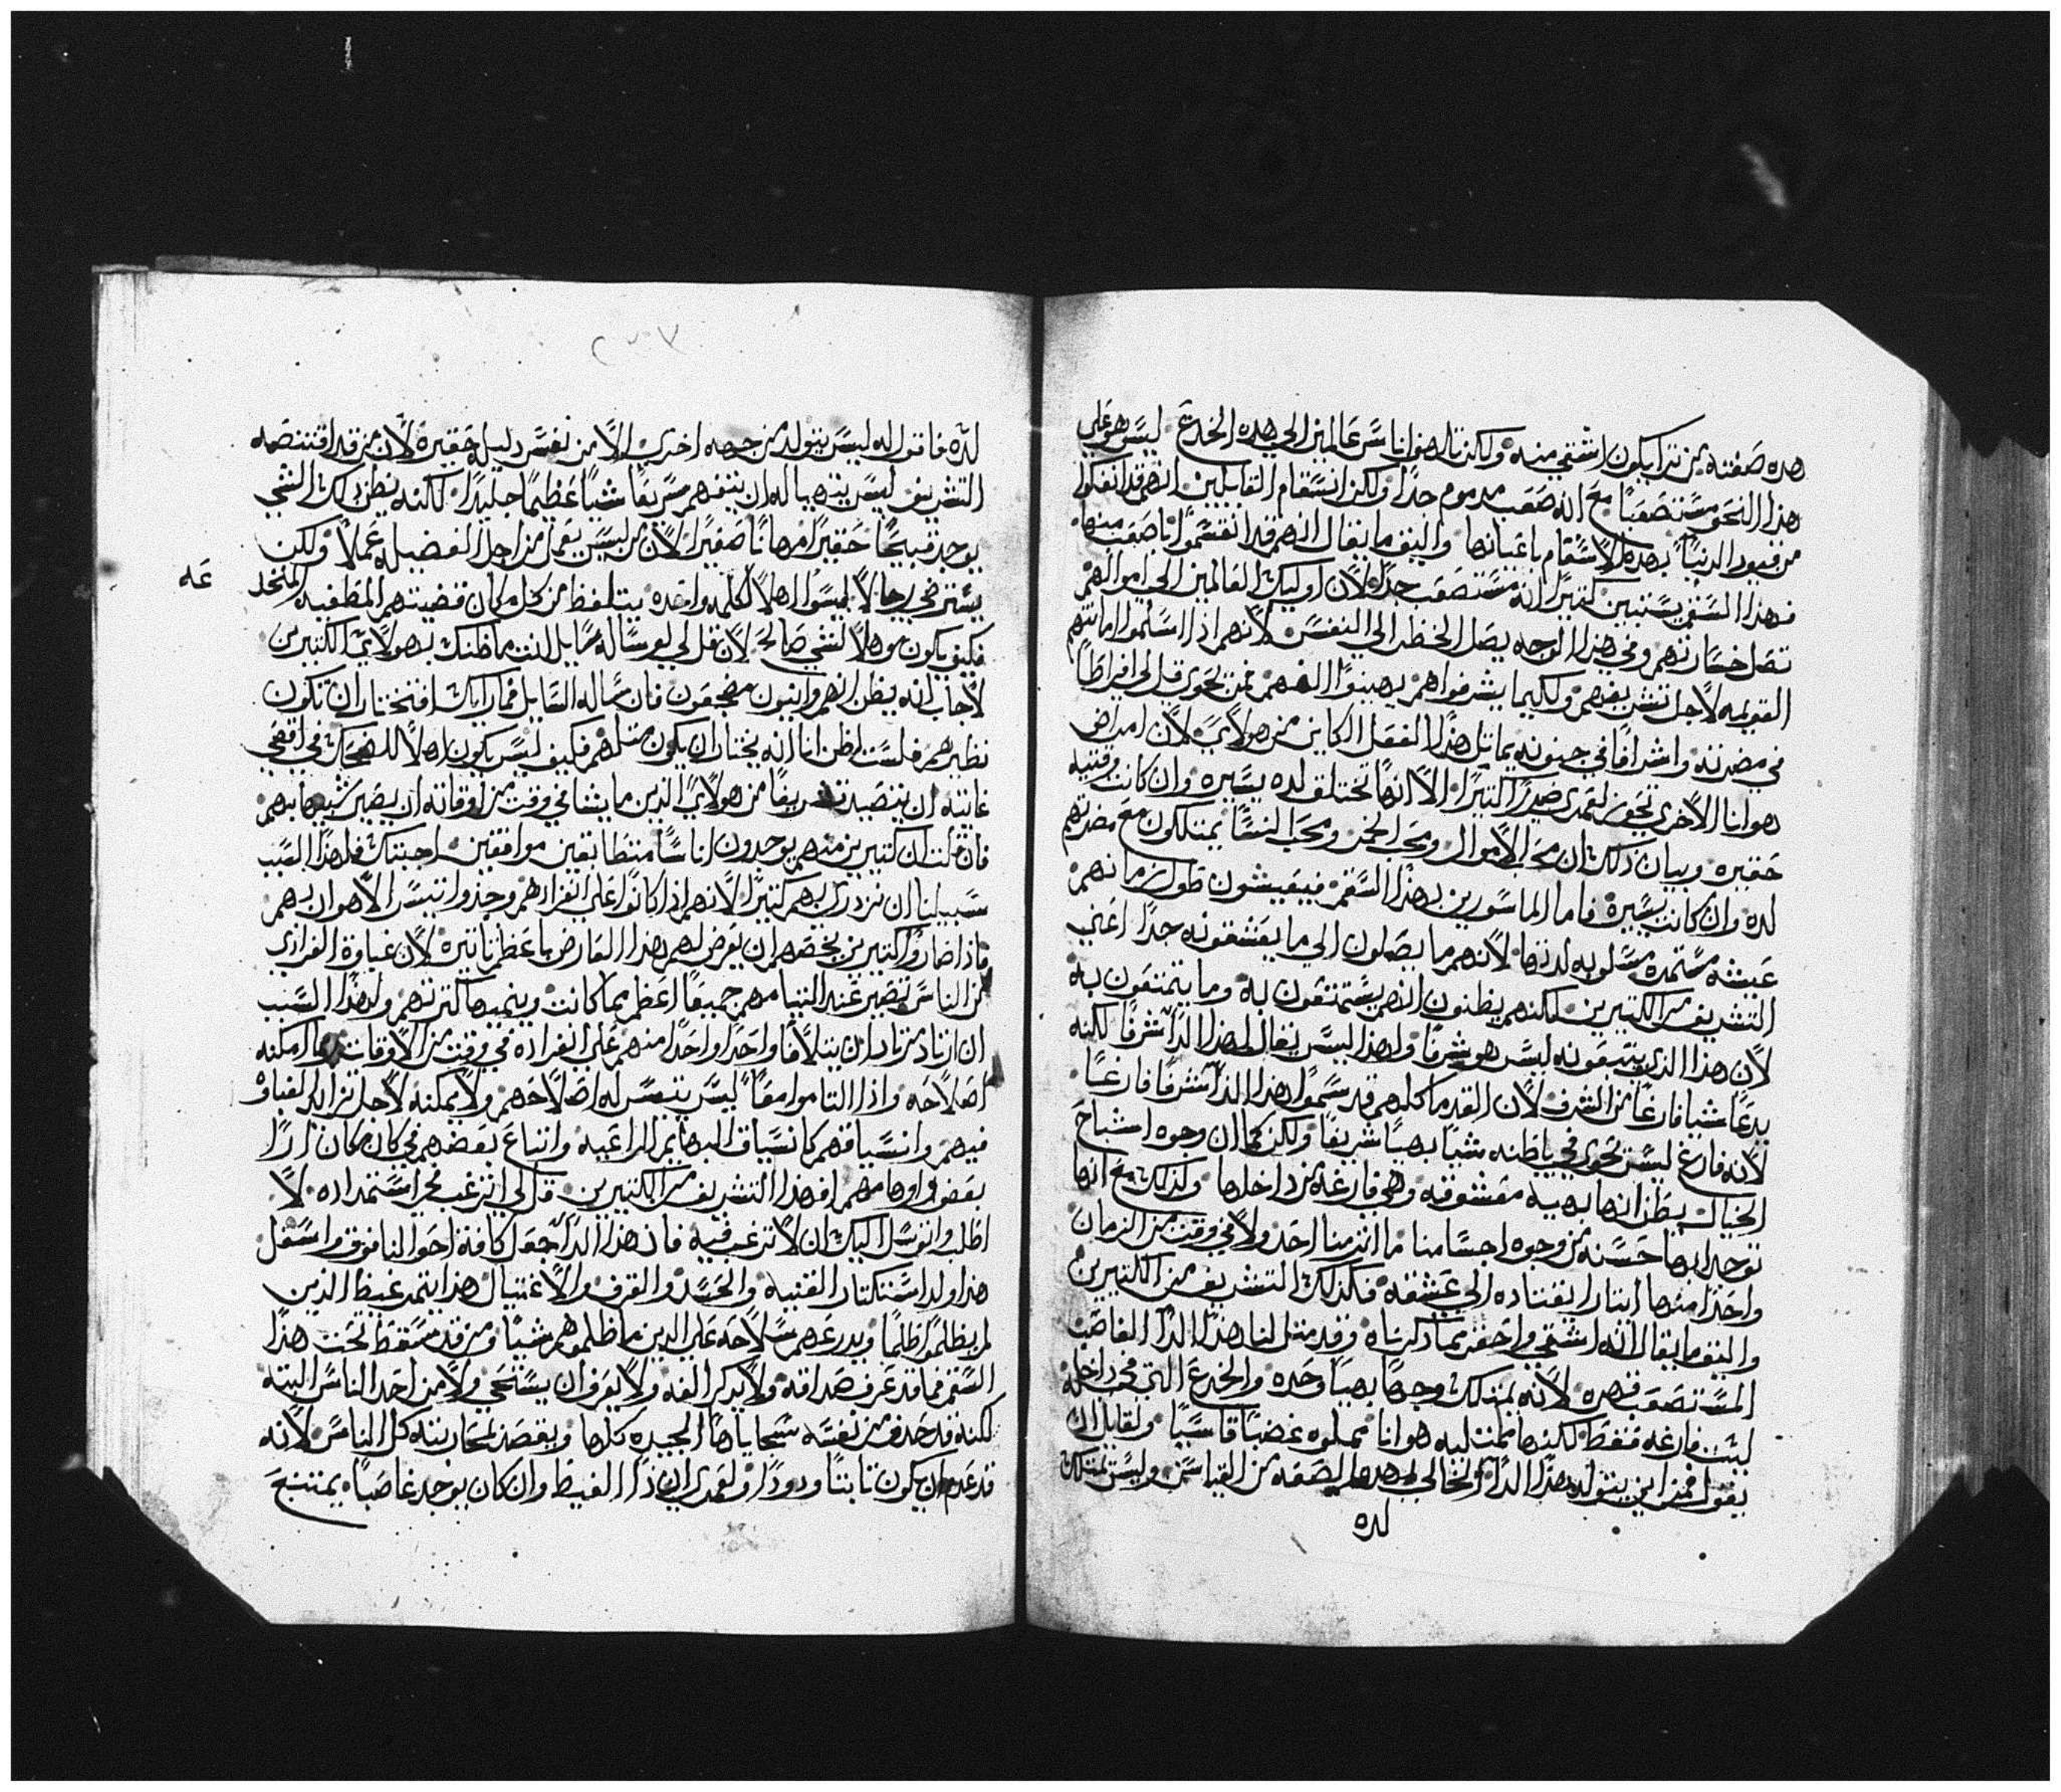 هده صفته من ترا يكون اشقي منه ولكن تالهفوا ناس عالمين الي هده الخدع ليس هو علي
هذا النحو مستصعباً مع انه صعب مدموم جداً ولكن انسقام القابلين انهم قد انفكوا
من قيود الدنيا بهده الاسقام باعيانها واليق ما يقال انهم قد انقسموا اناصعب منها
فهذا الشقي يستبين كتيراً انه مستصعب جداً لان اوليك العالمين الي اموالهم
تصل خسارتهم وفي هذا الوجه يصل الخطر الي النفس لانهم اذا اسلموا امانتهم
القويمه لاجل تشريفهم ولكيما يشرفوا هم يهينوا الههم فمن يحوي قل لي افراطاً
في مضرته واشرافاً في جنونه يماتل هذا الفعل الكاين من هولاي لان امراض
هوانا الاخري تحوي لعمري ضرراً كتيراً الا انها تختلق لده يسيره وان كانت وقتيه
حقيره وبيان ذلك ان محب الاموال ومحب الخمر ومحب النسا يمتلكون مع مضرتهم
لده وان كانت يسيره فاما الماسورين بهذا السقم فيعيشون طول زمانهم
عيشه مستمره مسلوبه لدتها لانهم ما يصلون الي ما يعشقونه جداً اعني
التشريف من الكتيرين لكنهم يظنون انهم يستمتعون به وما يتمتعون به
لان هذا الذي يتبعونه ليس هو شرفاً ولهذا ليس يقال لهذا الدا شرفاً لكنه
يدعا شياً فارغاً من الشرف لان القدما كلهم قد سموا هذا الدا شرفاً فارغاً
لانه فارغ ليس يحوي في باطنه شياً بهياً شريفاً ولكن كما ان وجوه اشباح
الخيال يظن انها بهيه معشوقه وهي فارغه من داخلها ولذلك مع انها
توجد ابها حسنه من وجوه اجسامنا ما اتر منا احد ولا في وقت من الزمان
واحداً منها ايتاراً يقتاده الي عشقه فكذلك التشريف من الكتيرين
واليق ما يقال انه اشقي واحقر مما ذكرناه وقد متل لنا هذا الدا الغاصب
المستصعب قهره لانه يمتلك وجهاً بهياً وحده والخدع التي في داخله
ليست فارغه فقط لكنها ممتليه هواناً مملوه غضباً قاسياً ولقايل ان
يقول فمن اين يتولد هذا الدا الخالي لهده الصفه من القياس وليس يمتلك
لده
٢٣٧
لده فاقول انه ليس يتولد من جهه اخري الا من نفس دليله حقيره لان من قد اقتنصه
التشريف ليس يتهيا له ان يتفهم سريعاً شياً عظيماً جليداً لكنه يظن ذلك الشي
يوجد قبيحاً حقيراً مهاناً صغيراً لان من ليس يعمل من اجل الفضيله عملاً ولكن
يسترضي رجالاً ليسوا اهلاً لكلمه واحده يتلفظ من كل مكان قضيتهم المطغيه المتخلـ
عه
فكيف يكون موهلاً لشي صالح لان قل لي لو سالك سايل انت ما ظنك بهولاي الكتيرين
لاجاب انه يظن انهم وانيون مضجعون فان ساله السايل فما رايك افتختار ان تكون
نظيرهم فلست اظن انا انه يختار ان يكون متلهم فكيف ليس يكون اهلاً للضحك في اقصي
غايته ان يتصيد تشريفاً من هولاي الذين ما يشا في وقت من اوقاته ان يصير شبيهاً بهم
فان قلت ان كتيرين منهم يوجدون اناساً متطابقين موافقين اجبتك فلهذا السبب
سبيلنا ان نزدري بهم كتيراً لانهم اذا كانوا علي انفرادهم وجدوا تيسر الاهوان بهم
فاذا صاروا كتيرين يخصهم ان يعرض لهم هذا العارض باعظم تاتيره لان غباوة الفرادي
من الناس تصير عند التيامهم جميعاً اعظم مما كانت وينميها كترتهم ولهذا السبب
ان اراد مريد ان يتلافا واحداً واحداً منهم علي انفراده في وقت من الاوقات ربما امكنه
اصلاحه واذا التاموا معاً ليس يتيسر له اصلاحهم ولا يمكنه لاجل تزايد الغباوه
فيهم وانسياقهم كانسياق البهايم الراعيه واتباع بعضهم في كل مكان ارا
بعض واوهامهم افهذا التشريف من الكتيرين قل لي اترغب في استمداده لا
اطلب واتوسل اليك ان لا ترغب فيه فان هذا الدا جعل كافة احوالنا فوق واسفل
هذا ولد استكتار القنيه والحسد والقرف والاغتيال هذا يتمر غيظ الذين
لم يظلموا ظلماً ويدرعهم سلاحه علي الدين ما ظلموهم شياً ومن قد سقط تحت هذا
السقم فما قد عرف صداقه ولا يدكر الفه ولا يعرف ان يستحي ولا من احد الناس البته
لكنه قد حدف من نفسه سجاياها الجيده كلها ويقصد لمحاربته كل الناس لانه
قد عدم ان يكون تابتاً ودوداً ولعمري ان دا الغيظ وان كان يوجد غاصباً يمتنع